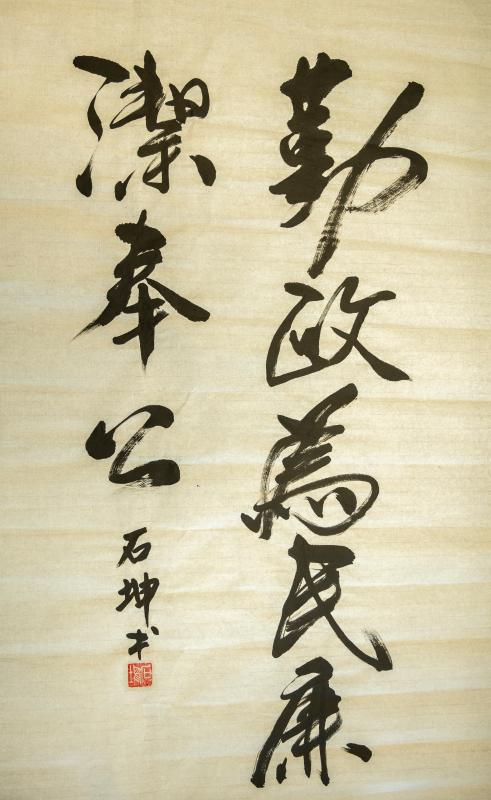 勤政為民廉
潔奉公
石坤书